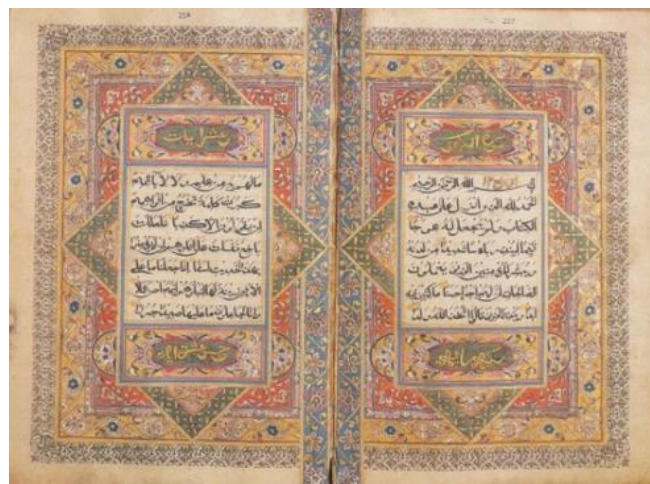 257
سورة الكهف
بسم الله الرحمن الرحيم
الحمد لله الذى انزل على عبده
الكتاب ولم يجعل له عوجا
قيما لينذر باسا شديدا من لدنه
ويبشر المؤمنين الذين يعملون
الصالحات ان لهم اجرا حسنا ماكثين فيه
ابدا وينذر الذين قالوا اتخذ الله ولدا
258
وعشر ايات
ما لهم به من علم ولا لابائهم
كبرت كلمة تخرج من افواههم
ان يقولون الا كذبا فلعلك
باخع نفسك على اثارهم ان لم يؤمنوا
بهذا الحديث اسفا انا جعلنا ما على
الارض زينة لها لنبلوهم ايهم احسن عملا
وانا لجاعلون ما عليها صعيدا جرزا